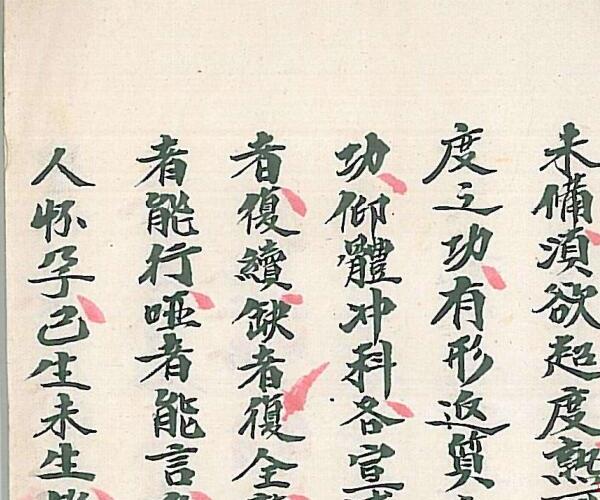 未備須欲超度
度之功有形返質
功仰體冲科各宣
者復續缺者復全
者能行哑者能言
人怀孕已生未生